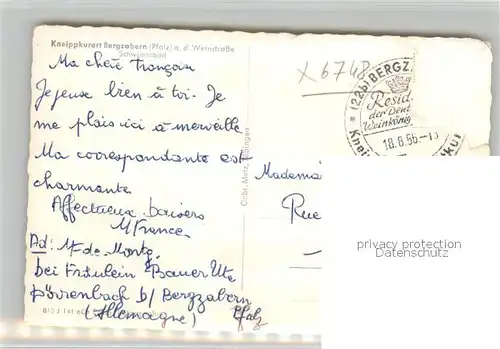 Kneippkurort Bergzabern (Pfalz) a. d. Weinstraße
Schwimmbad
Ma chère Françoise
Je pense bien à toi. Je
me plais ici à merveille
Ma correspondante est
charmante
Affectueux baisers
M France
Ad: M de
bei Fräulein Bauer Ute
Dörrenbach b/ Bergzabern
(Allemagne) Pfalz
Gebr. Metz, Tübingen
X6748
(22b) BERGZ
Resid.
der Deut
Weinkönig
18.6.56.-13
Knei
Mademoi
Rue
privacy protection
Datenschutz